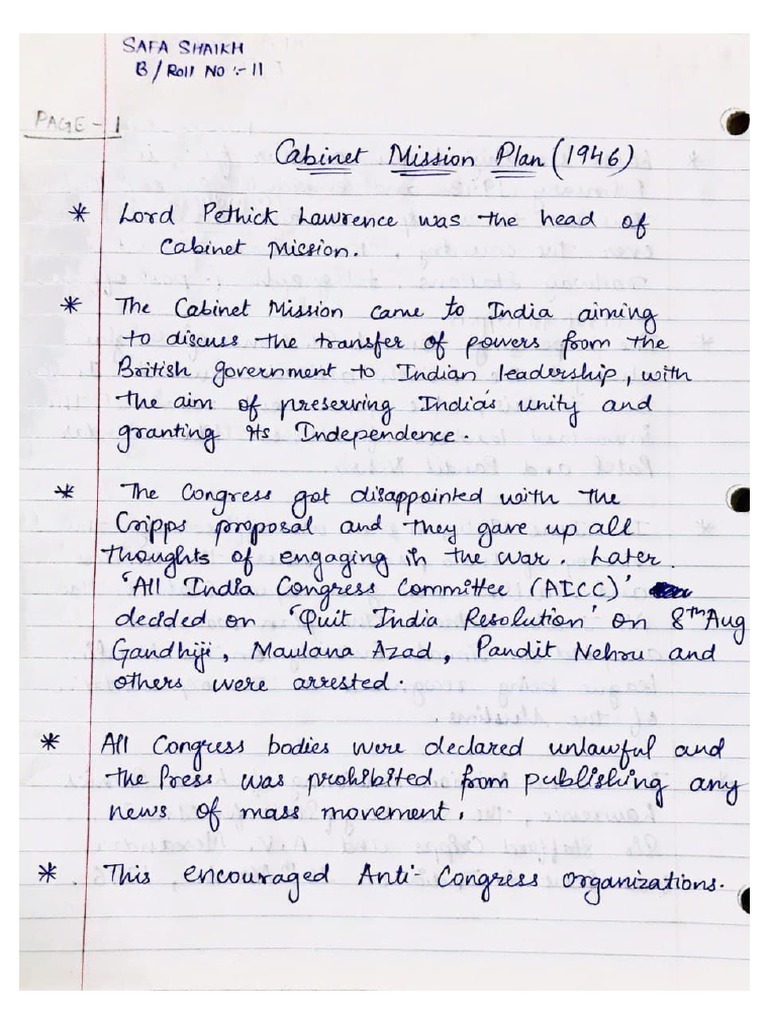 SAFA SHAIKH
B / Roll No :- 11
PAGE - 1
Cabinet Mission Plan (1946)
* Lord Pethick Lawrence was the head of
Cabinet Mission.
* The Cabinet Mission came to India aiming
to discuss the transfer of powers from the
British government to Indian leadership, with
the aim of preserving India's unity and
granting its Independence.
* The Congress got disappointed with the
Cripps proposal and they gave up all
thoughts of engaging in the war. Later
'All India Congress Committee (AICC)'
decided on 'Quit India Resolution' on 8th Aug
Gandhiji, Maulana Azad, Pandit Nehru and
others were arrested.
* All Congress bodies were declared unlawful and
the Press was prohibited from publishing any
news of mass movement.
* This encouraged Anti-Congress organizations.